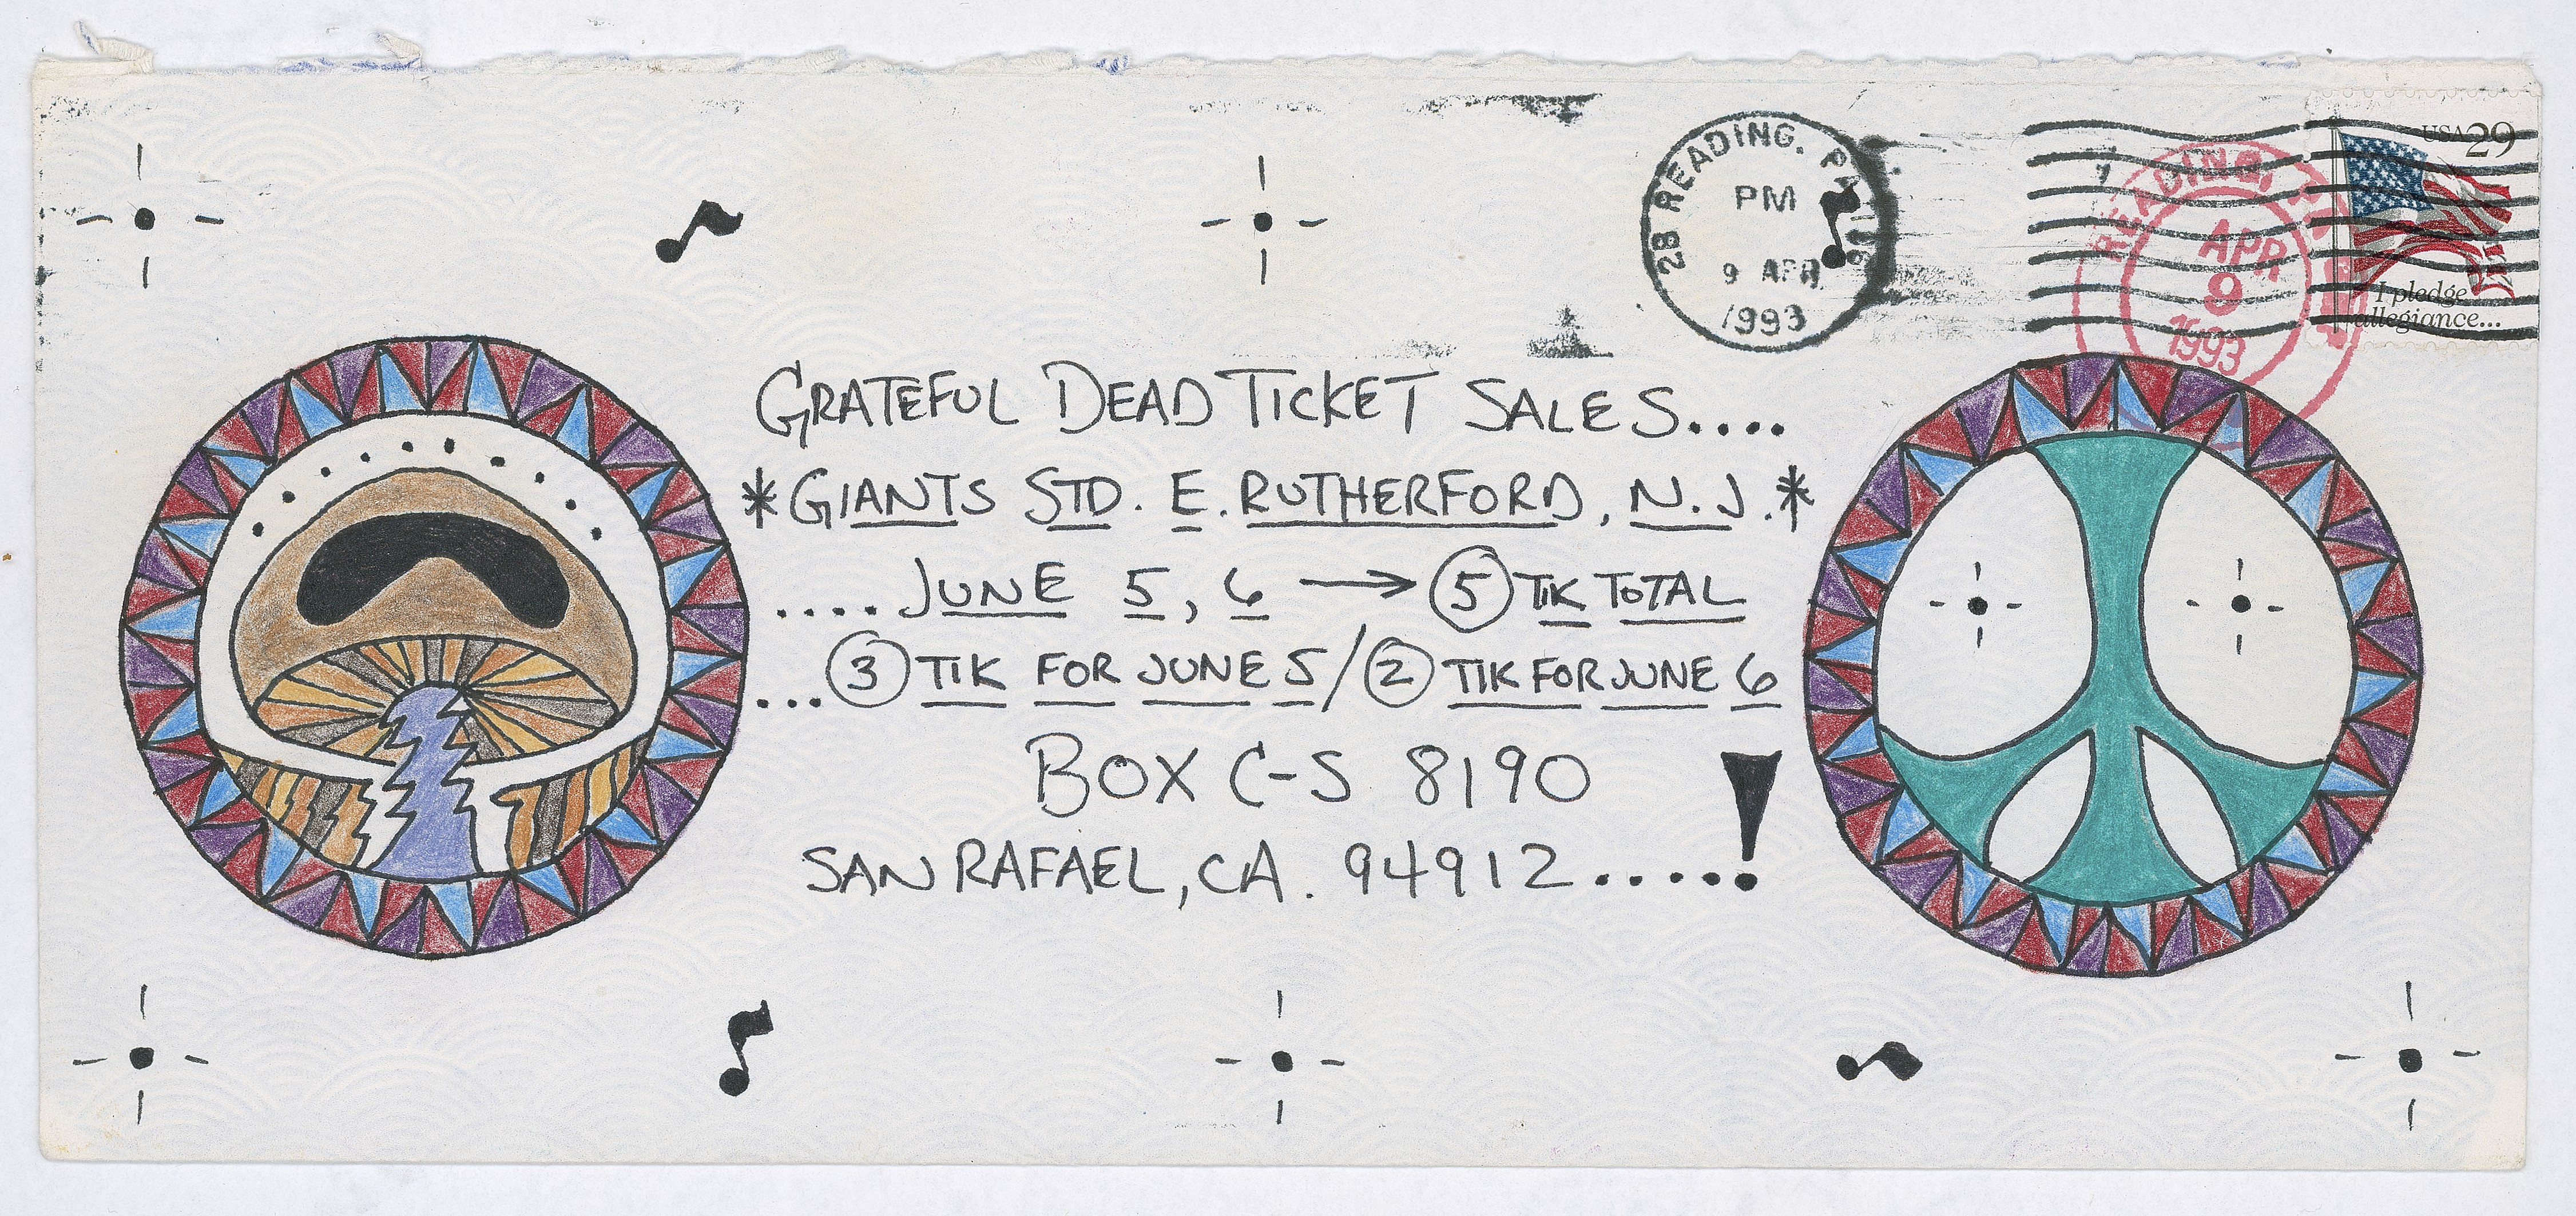 USA 29
I pledge
allegiance...
28 READING, PA
PM
9 APR
1993
READING,
APR
9
1993
GRATEFUL DEAD TICKET SALES....
*GIANTS STD. E. RUTHERFORD, N.J.*
....JUNE 5, 6 → 5 TIK TOTAL
...3 TIK FOR JUNE 5/2 TIK FOR JUNE 6
BOX C-S 8190
SAN RAFAEL, CA. 94912.....!